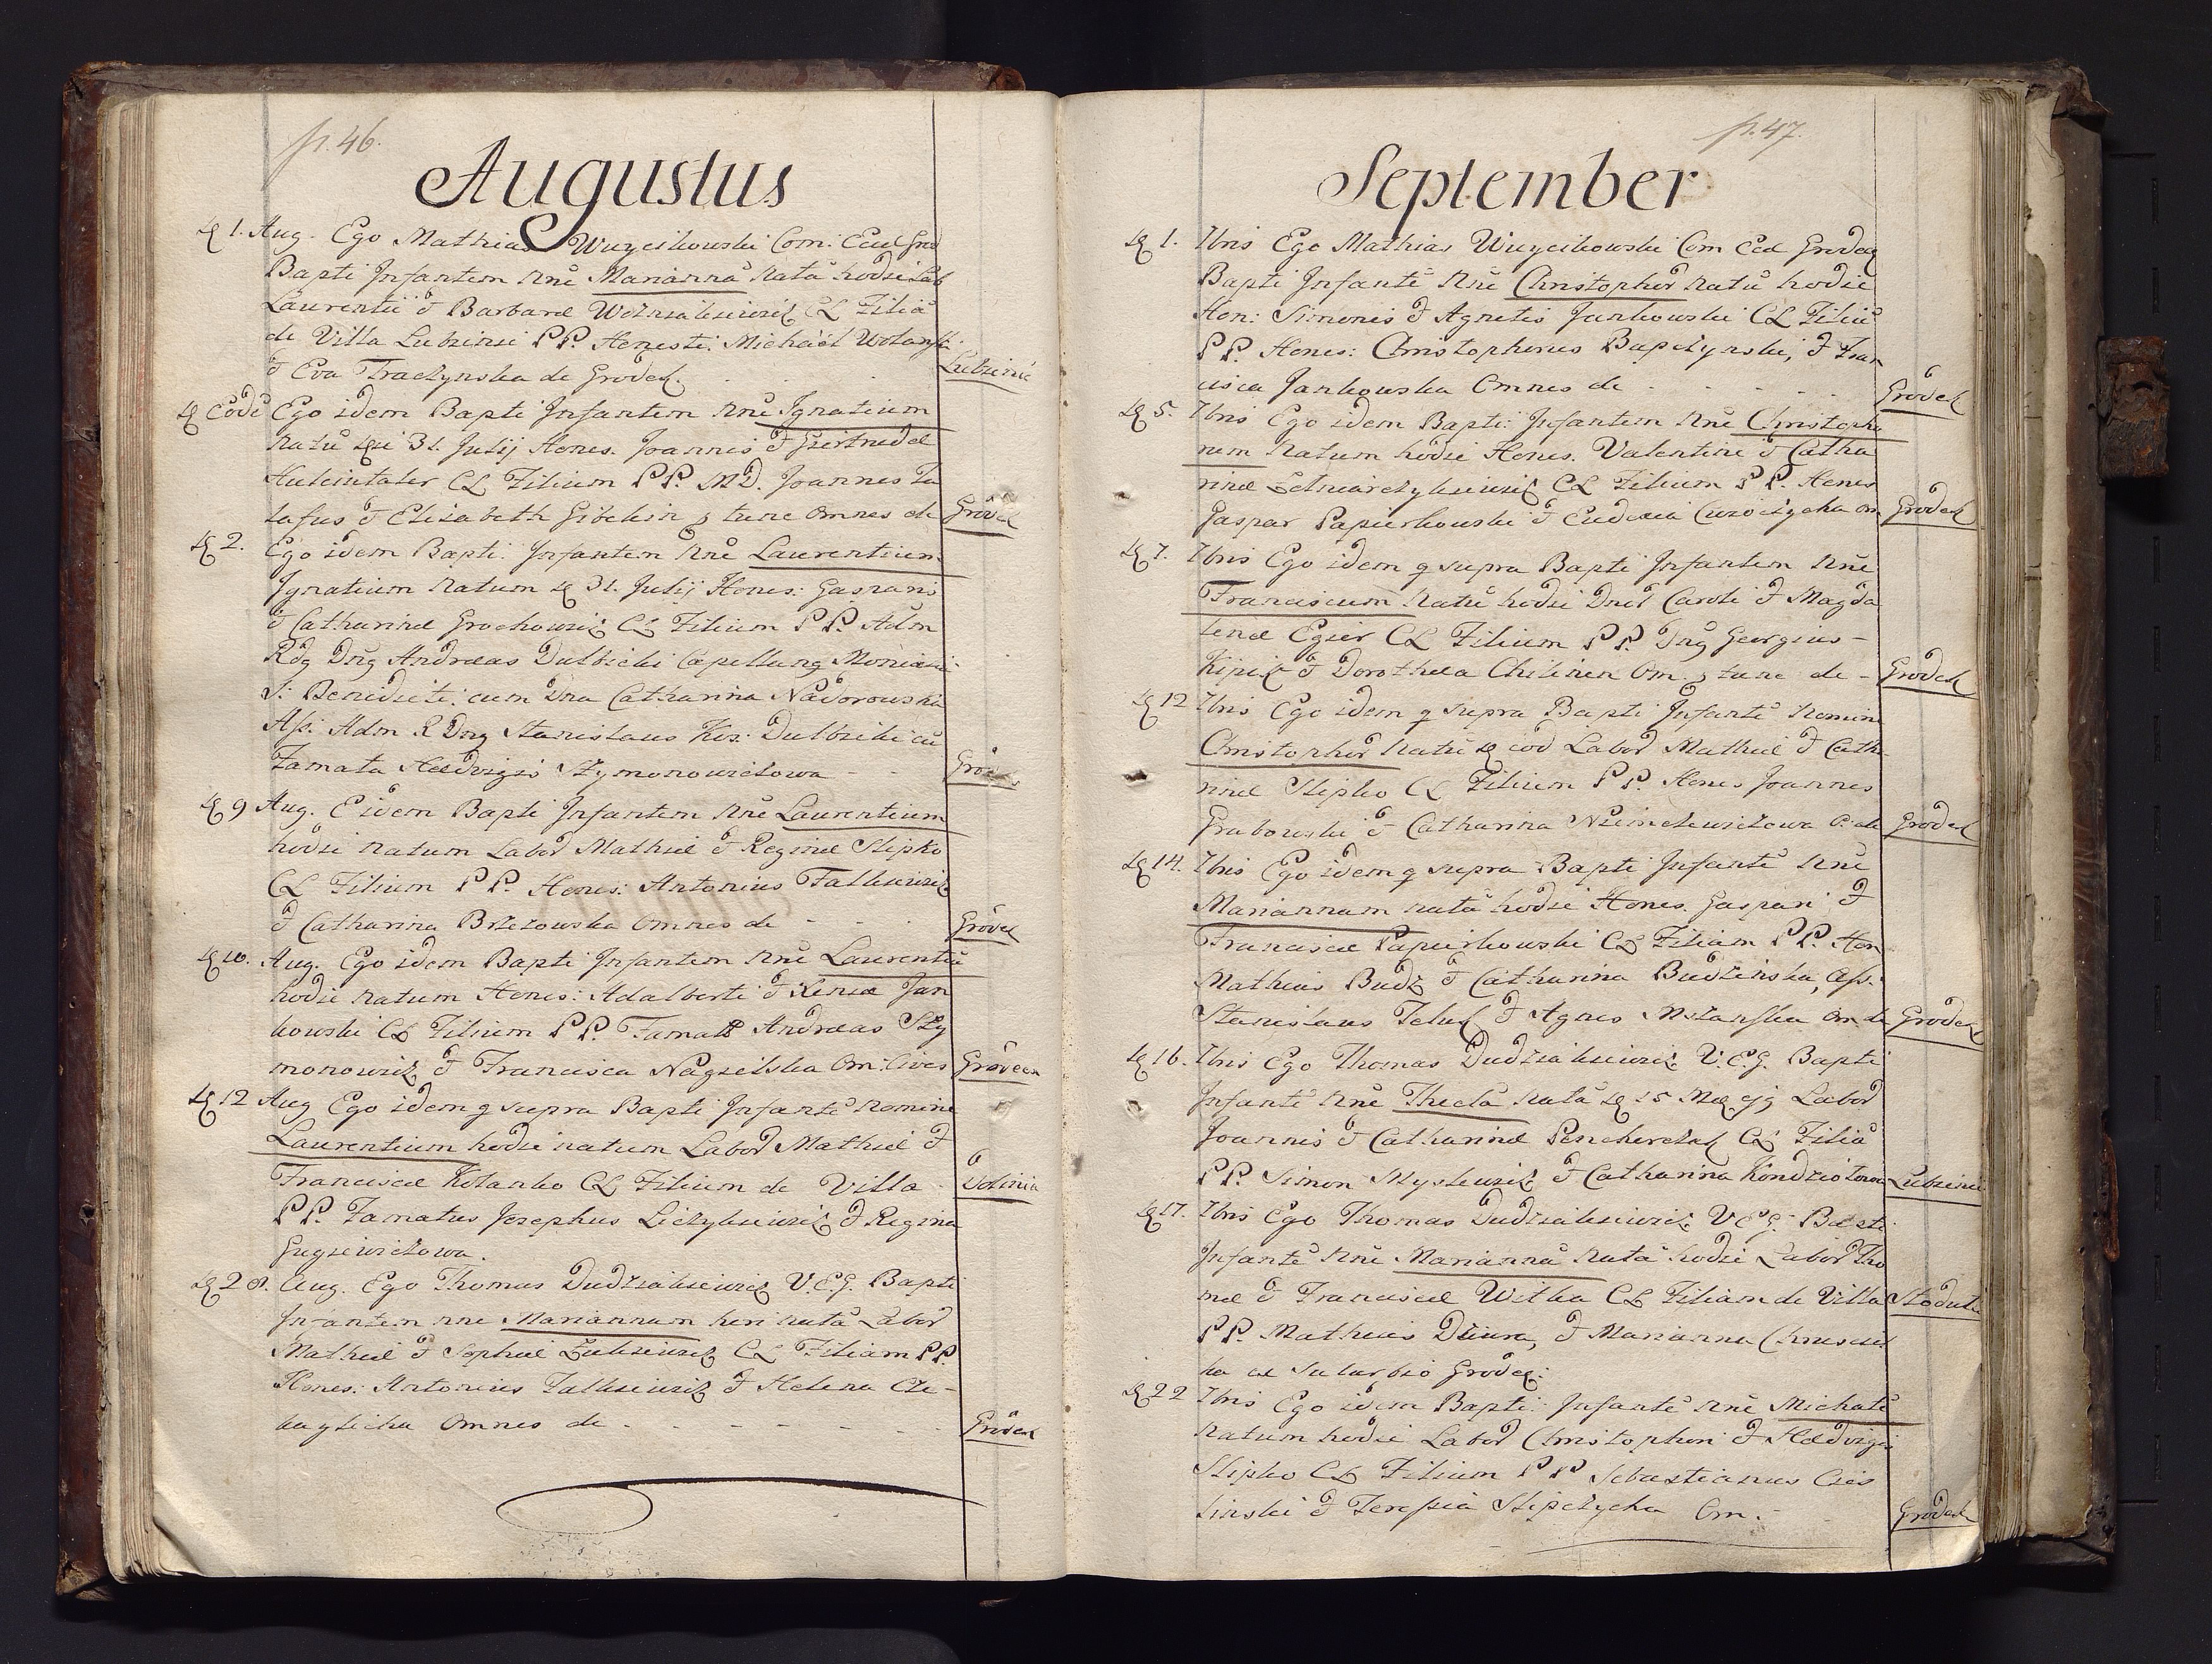 p. 46.
Augustus
1. Aug. Ego Mathias Wuycikowski Com: Eccl Grod
Bapti Infantem nne Marianna nata hodie Lab
Laurentii & Barbarae CL Filia
de Villa Lubzinie PP. Honesti: Michael Wolansk
& Eva Traczynska de Grodek. Lubzinie
Eode Ego idem Bapti Infantem nne Ignatium
natu die 31. Julij Hones. Joannis & Giertrudae
CL Filium PP. MD. Joannes Za
& Elisabeth Gibelin p tunc omnes de Grodek
2. Ego idem Bapti Infantem nne Laurentium
Ignatium natum 31. Julij Hones: Gaspari
& Catharinae Grochowicz CL Filium PP. Adm
Rdg Dng Andreas Dulbicki Capellang Moniali
S: Benedicti: cum Dna Catharina Nadorowska
Ass: Adm R Dng Stanislaus cu
Famata Hedvigis Szymonowiczowa - -
9 Aug. Eidem Bapti Infantem nne Laurentium
hodie natum Labod Mathiae & Reginae Slipko
CL Filium PP. Hones: Antonius Falkiewicz
& Catharina Brzezowska Omnes de - - Grodek
10. Aug. Ego idem Bapti Infantem nne Laurentiu
hodie natum Hones: Adalberti & Jan
kowski CL Filium PP. Famati Andreas Szy
monowicz & Francisca Nagzelska Om: Cives Grodecen
12 Aug Ego idem q supra Bapti Infante nomine
Laurentium hodie natum Labod Mathiae &
Franciscae Kolanko CL Filium de Villa - Dolinia
PP. Famatus Josephus Liczykiewicz & Regina
Gugsiewiczowa.
28. Aug. Ego Thomas Dudziakiewicz V.E.G. Bapti
Infantem nne Mariannam heri nata Labod
Mathiae & Sophiae Zukiewicz CL Filiam PP.
Hones: Antonius Falkiewicz & Helena Cze-
kaylicha Omnes de - - - - - Grodek
p. 47.
September
1. 7bris Ego Mathias Wuycikowski Com Eccl Grodeq
Bapti Infante nne Christophor natu hodie
Hon: Simonis & Agnetis Jankowski CL Filiu
PP. Hones: Christophorus Bapczynski, & Fran
cisca Jankowska Omnes de - - - - Grodek
5. 7bris Ego idem Bapti: Infantem nne Christopho
rum natum hodie Hones. Valentini & Catha
rinae CL Filium PP. Hones
Gaspar Papierkowski & om Grodek
7. 7bris Ego idem q supra Bapti Infantem nne
Franciscum natu hodie Dnor Caroli & Magda
lenae Egier CL Filium PP. Dng Georgius -
& Dorothea Om. p tunc de - Grodek
12 7bris Ego idem q supra Bapti Infante nomine
Christophor natu eod Labod Mathiae & Catha
rinae Slipko CL Filium PP. Hones Joannes
Grabowski & Catharina Niemczewiczowa O: de Grodek
14. 7bris Ego idem q supra Bapti Infante nne
Mariannam nata hodie Hones. Gaspari &
Franciscae Papierkowski CL Filiam PP. Hon
Mathias Budz & Catharina Budzinska, Ass.
Stanislaus & Agnes om de Grodek
16. 7bris Ego Thomas Dudziakiewicz V.E.G. Bapti
Infante nne Thecla nata 15 M ejg Labod
Joannis & Catharinae CL Filia
PP. Simon Myskewicz & Catharina Kondziolowa Lubzinie
17. 7bris Ego Thomas Dudziakiewicz V.E.G. Bapti
Infante nne Marianna nata hodie Labod Tho
mae & Franciscae Witka CL Filiam de Villa Stodule
PP. Mathias Dziura, & Marianna
ka ex Suburbio Grodeq:
22 7bris Ego idem Bapti: Infante nne Michale
natum hodie Labod Christophori & Hedvigis
Slipko CL Filium PP Sebastianus Cies
linski & Teressia Slipczycha Om. - - Grodek